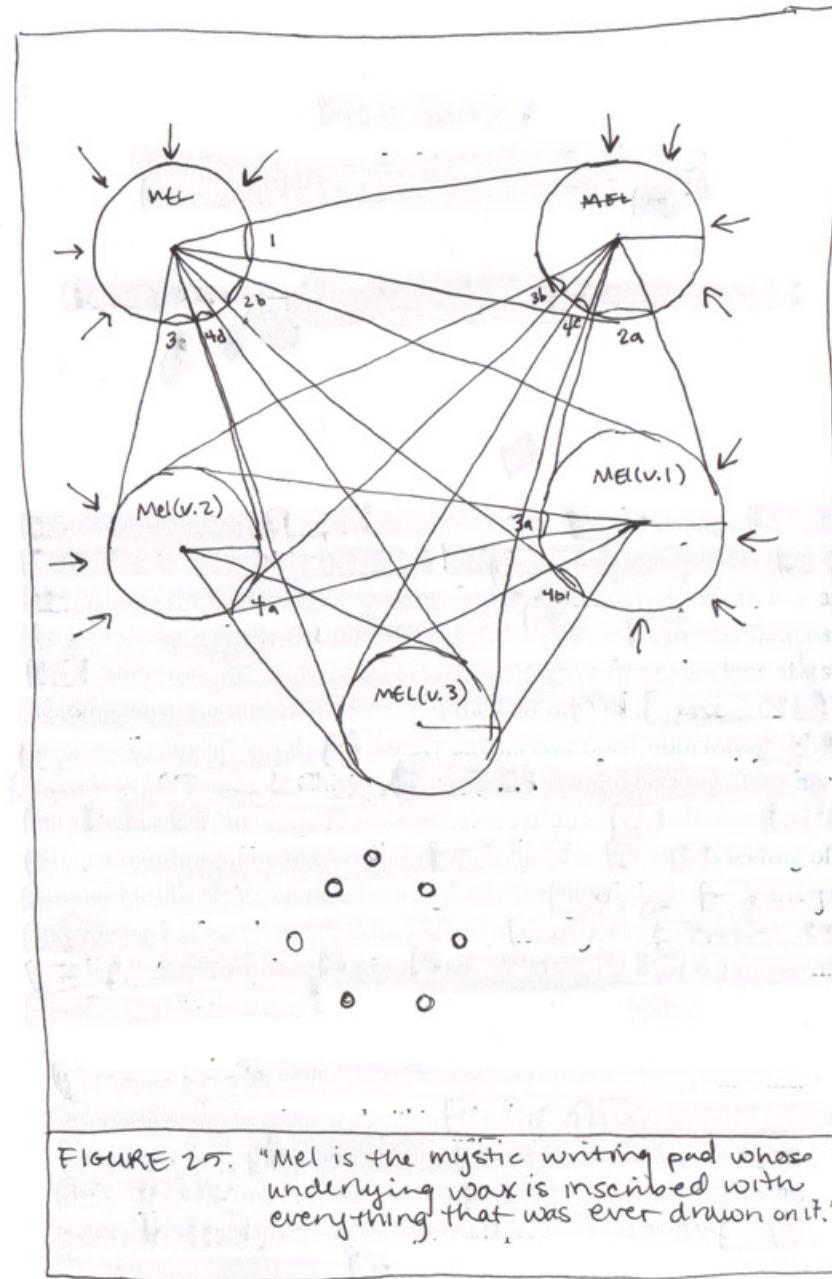 MEL
MEL
1
2b
3c
4d
3b
4c
2a
Mel(v.2)
MEL(v.1)
3a
4a
4b
MEL(v.3)
FIGURE 25. "Mel is the mystic writing pad whose
underlying wax is inscribed with
everything that was ever drawn on it."